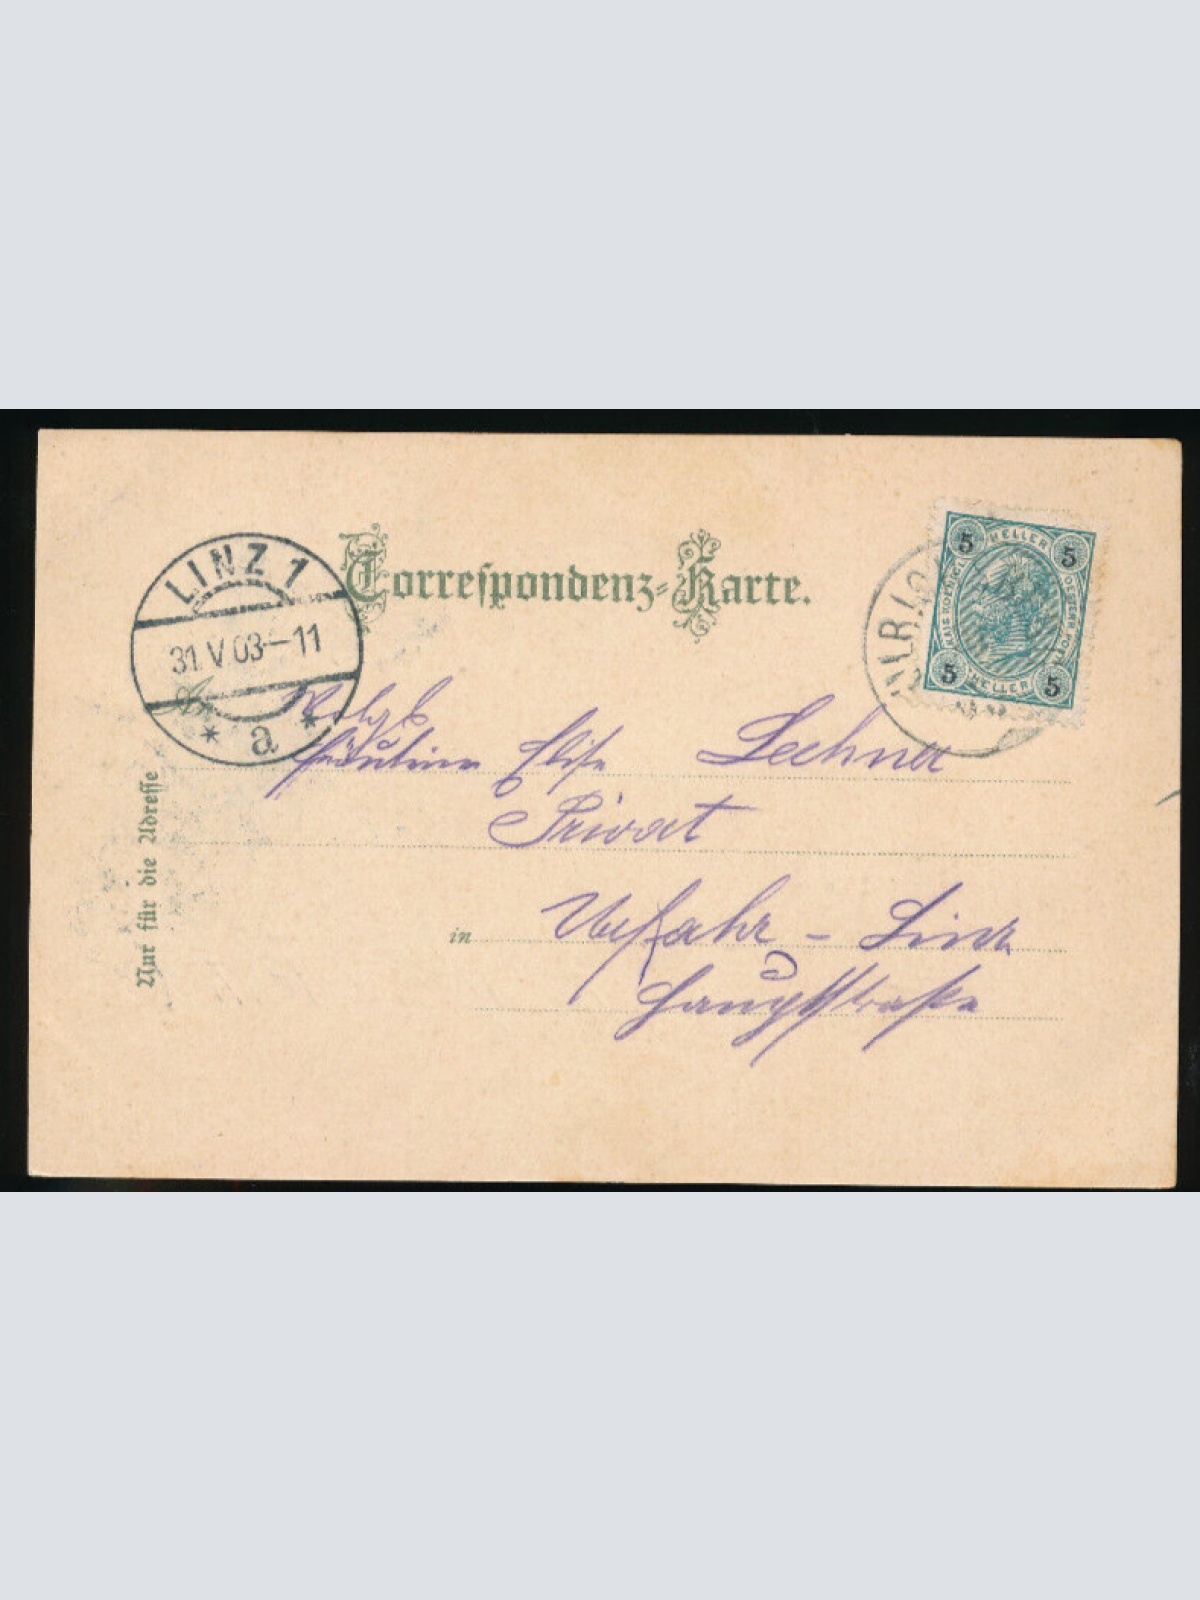 Correspondenz-Karte.
LINZ 1
31.V.03-11
* a *
5 HELLER 5
KAIS.KOENIGL. OESTERR.POST
5 HELLER 5
An
Wolgb
Fräulein Elise Lechner
Privat
in Urfahr - Linz
Hauptstraße
Nur für die Adresse